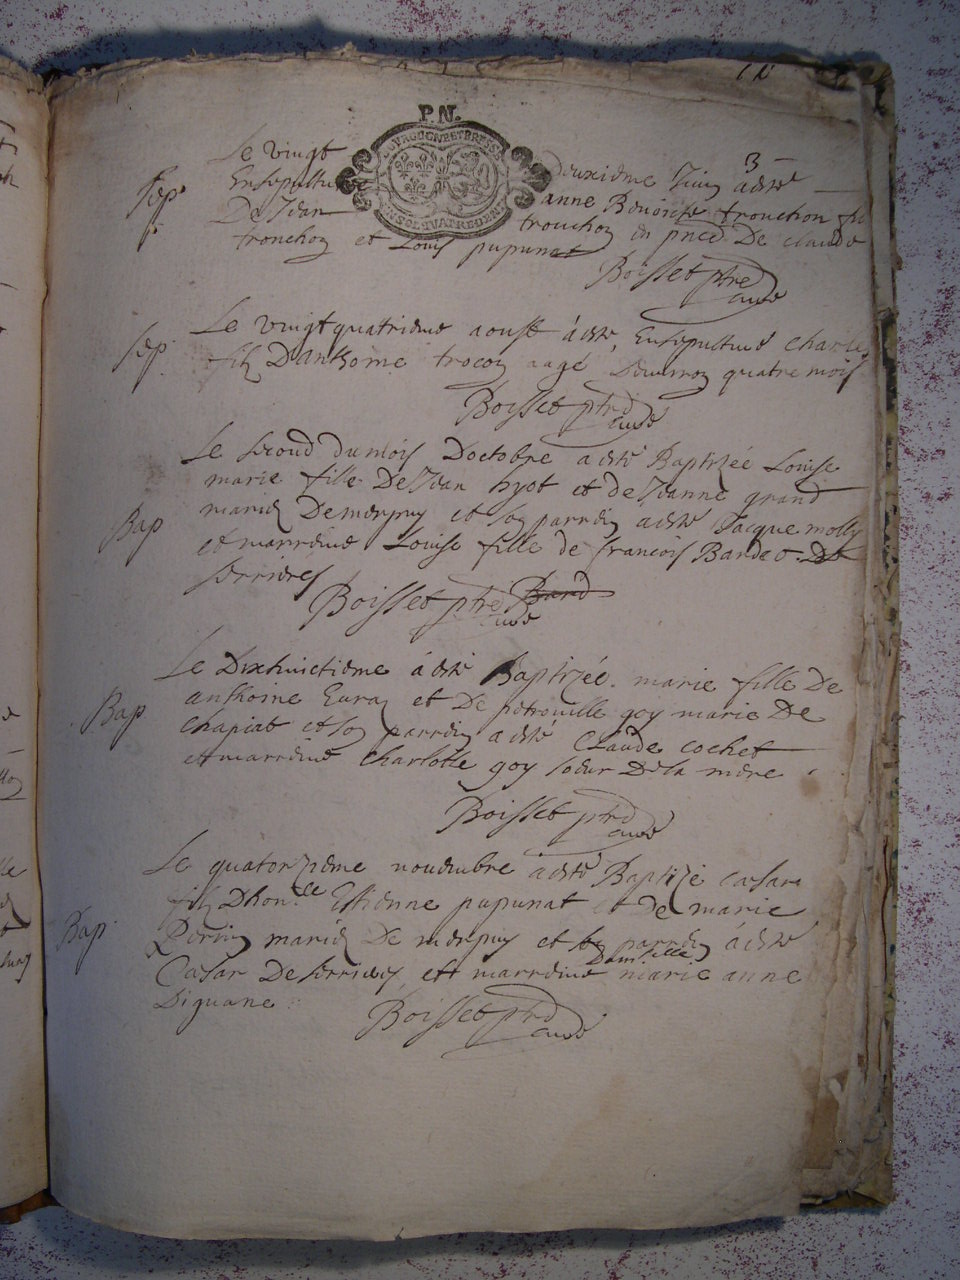 P.N.
BOURGOGNE ET BRESSE
UN SOL QUATRE DEN
3
Sep
Le vingt deuxieme Juin a esté
Ensepulturée anne Benoiste tronchon
De Jean tronchon en pnce De claude
tronchon et Louis pupunat
Boisset ptre curé
Sep
Le vingt quatrieme aoust a esté Ensepulturé charle
fils D'anthoine trocon aagé Denviron quatre mois
Boisset ptre curé
Bap
Le second du mois D'octobre a esté Baptizée Louise
marie fille De Jean hyot et de Jeanne grand
mariés De merpuy et son parrein a esté Jacque molly
et marreine Louise fille de francois Bande De
serrieres
Boisset ptre curé
Bap
Le Dixhuictieme a esté Baptizée marie fille De
anthoine Eura et De petronille goy mariés De
chapiat et son parrein a esté Claude cochet
et marreine charlotte goy soeur De la mere
Boisset ptre curé
Bap
Le quatorzieme novembre a esté Baptizé caesar
fils D'hon.ble Estienne pupunat et de marie
Perrin mariés De merpuy et son parrein a esté
Caesar De serrieres et marreine Damoiselle marie anne
Diguane
Boisset ptre curé